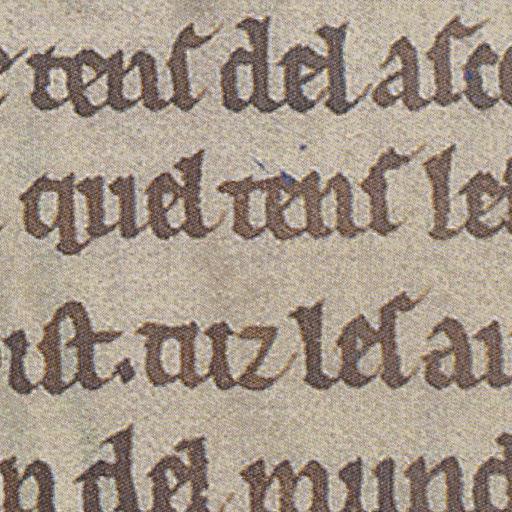 tens del asc
quel tens les
ist. tuz les au
n del mund